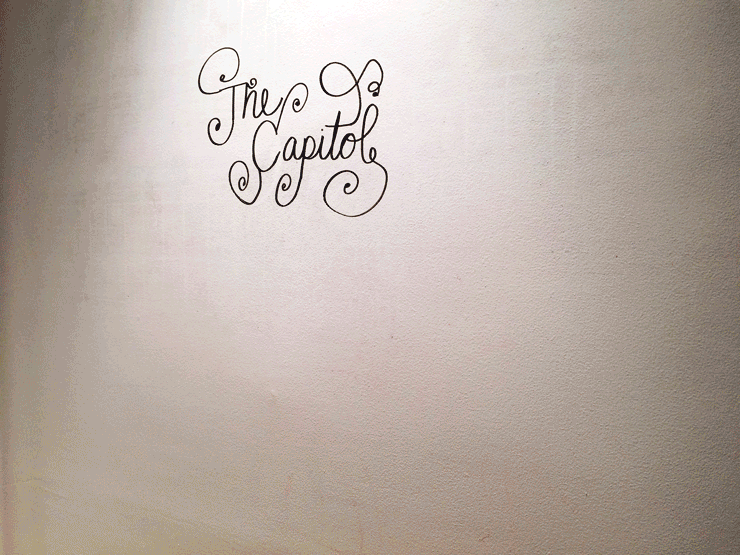 The
Capitol